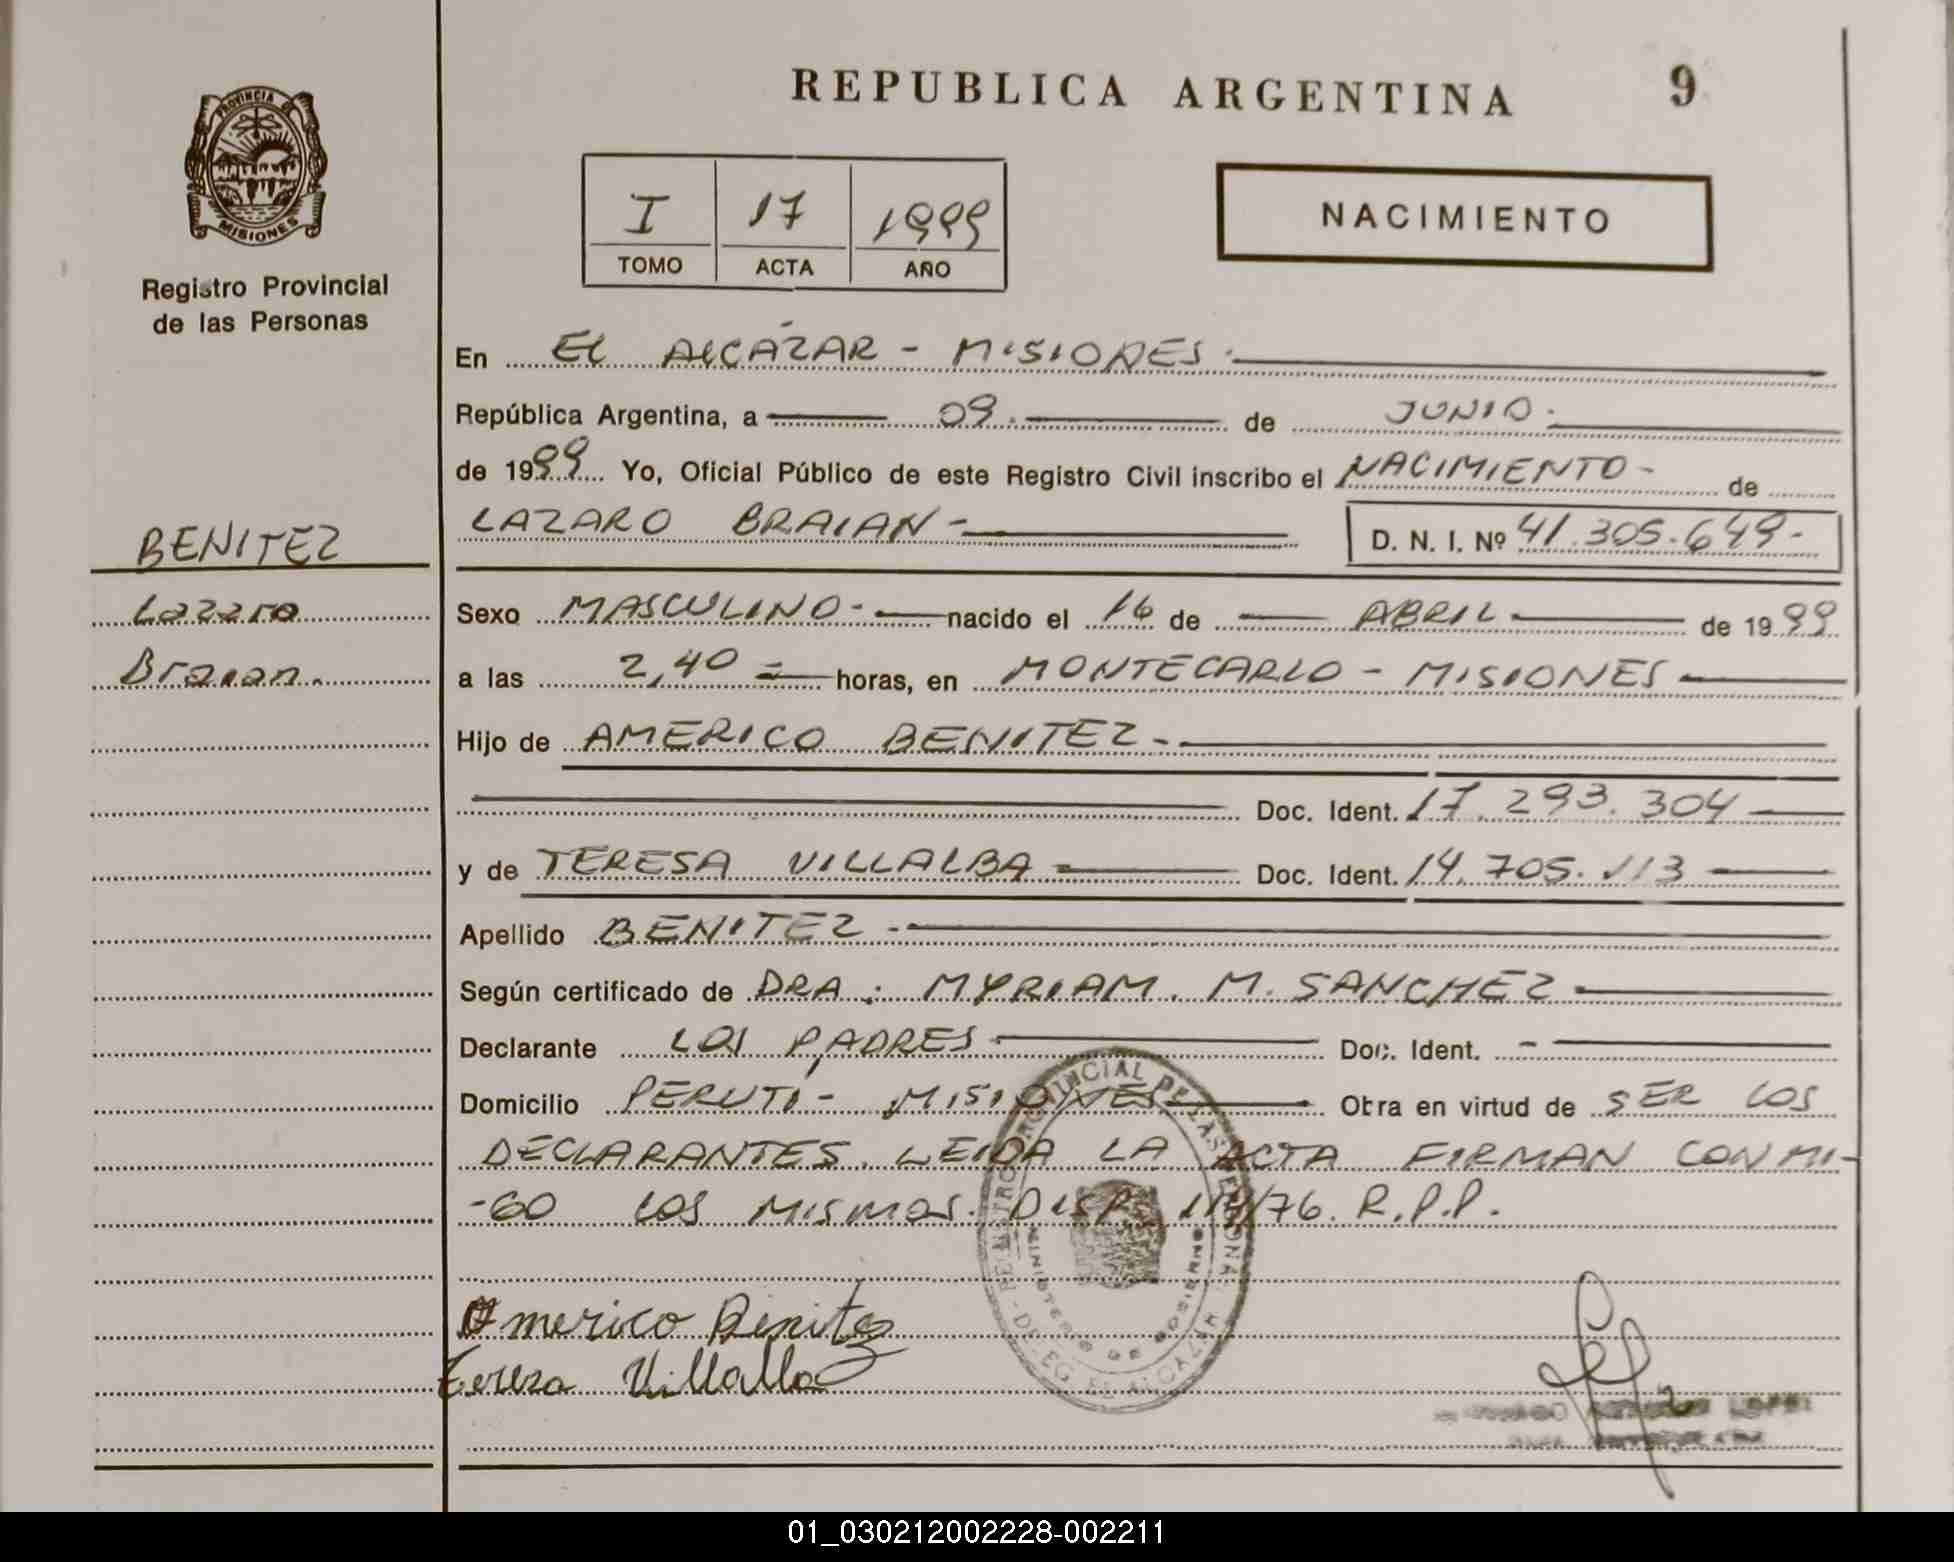 PROVINCIA DE
MISIONES
Registro Provincial
de las Personas
BENITEZ
Lazaro
Braian.
REPUBLICA ARGENTINA 9
I 17 1999
TOMO ACTA AÑO
NACIMIENTO
En EL ALCÁZAR - MISIONES.
República Argentina, a 09. de JUNIO.
de 1999 Yo, Oficial Público de este Registro Civil inscribo el NACIMIENTO - de
LAZARO BRAIAN - D. N. I. Nº 41.305.649-
Sexo MASCULINO - nacido el 16 de ABRIL de 1999
a las 2,40 = horas, en MONTECARLO - MISIONES
Hijo de AMERICO BENITEZ -
Doc. Ident. 17.293.304
y de TERESA VILLALBA Doc. Ident. 14.705.113
Apellido BENITEZ -
Según certificado de DRA: MYRIAM. M. SANCHEZ
Declarante LOS PADRES Doc. Ident. -
Domicilio PERUTÍ - MISIONES Obra en virtud de SER LOS
DECLARANTES. LEIDA LA ACTA FIRMAN CON MI-
-GO LOS MISMOS. DISP. 114/76. R.P.P.
Americo Benitez
Tereza Villalba
LOPEZ
01_030212002228-002211